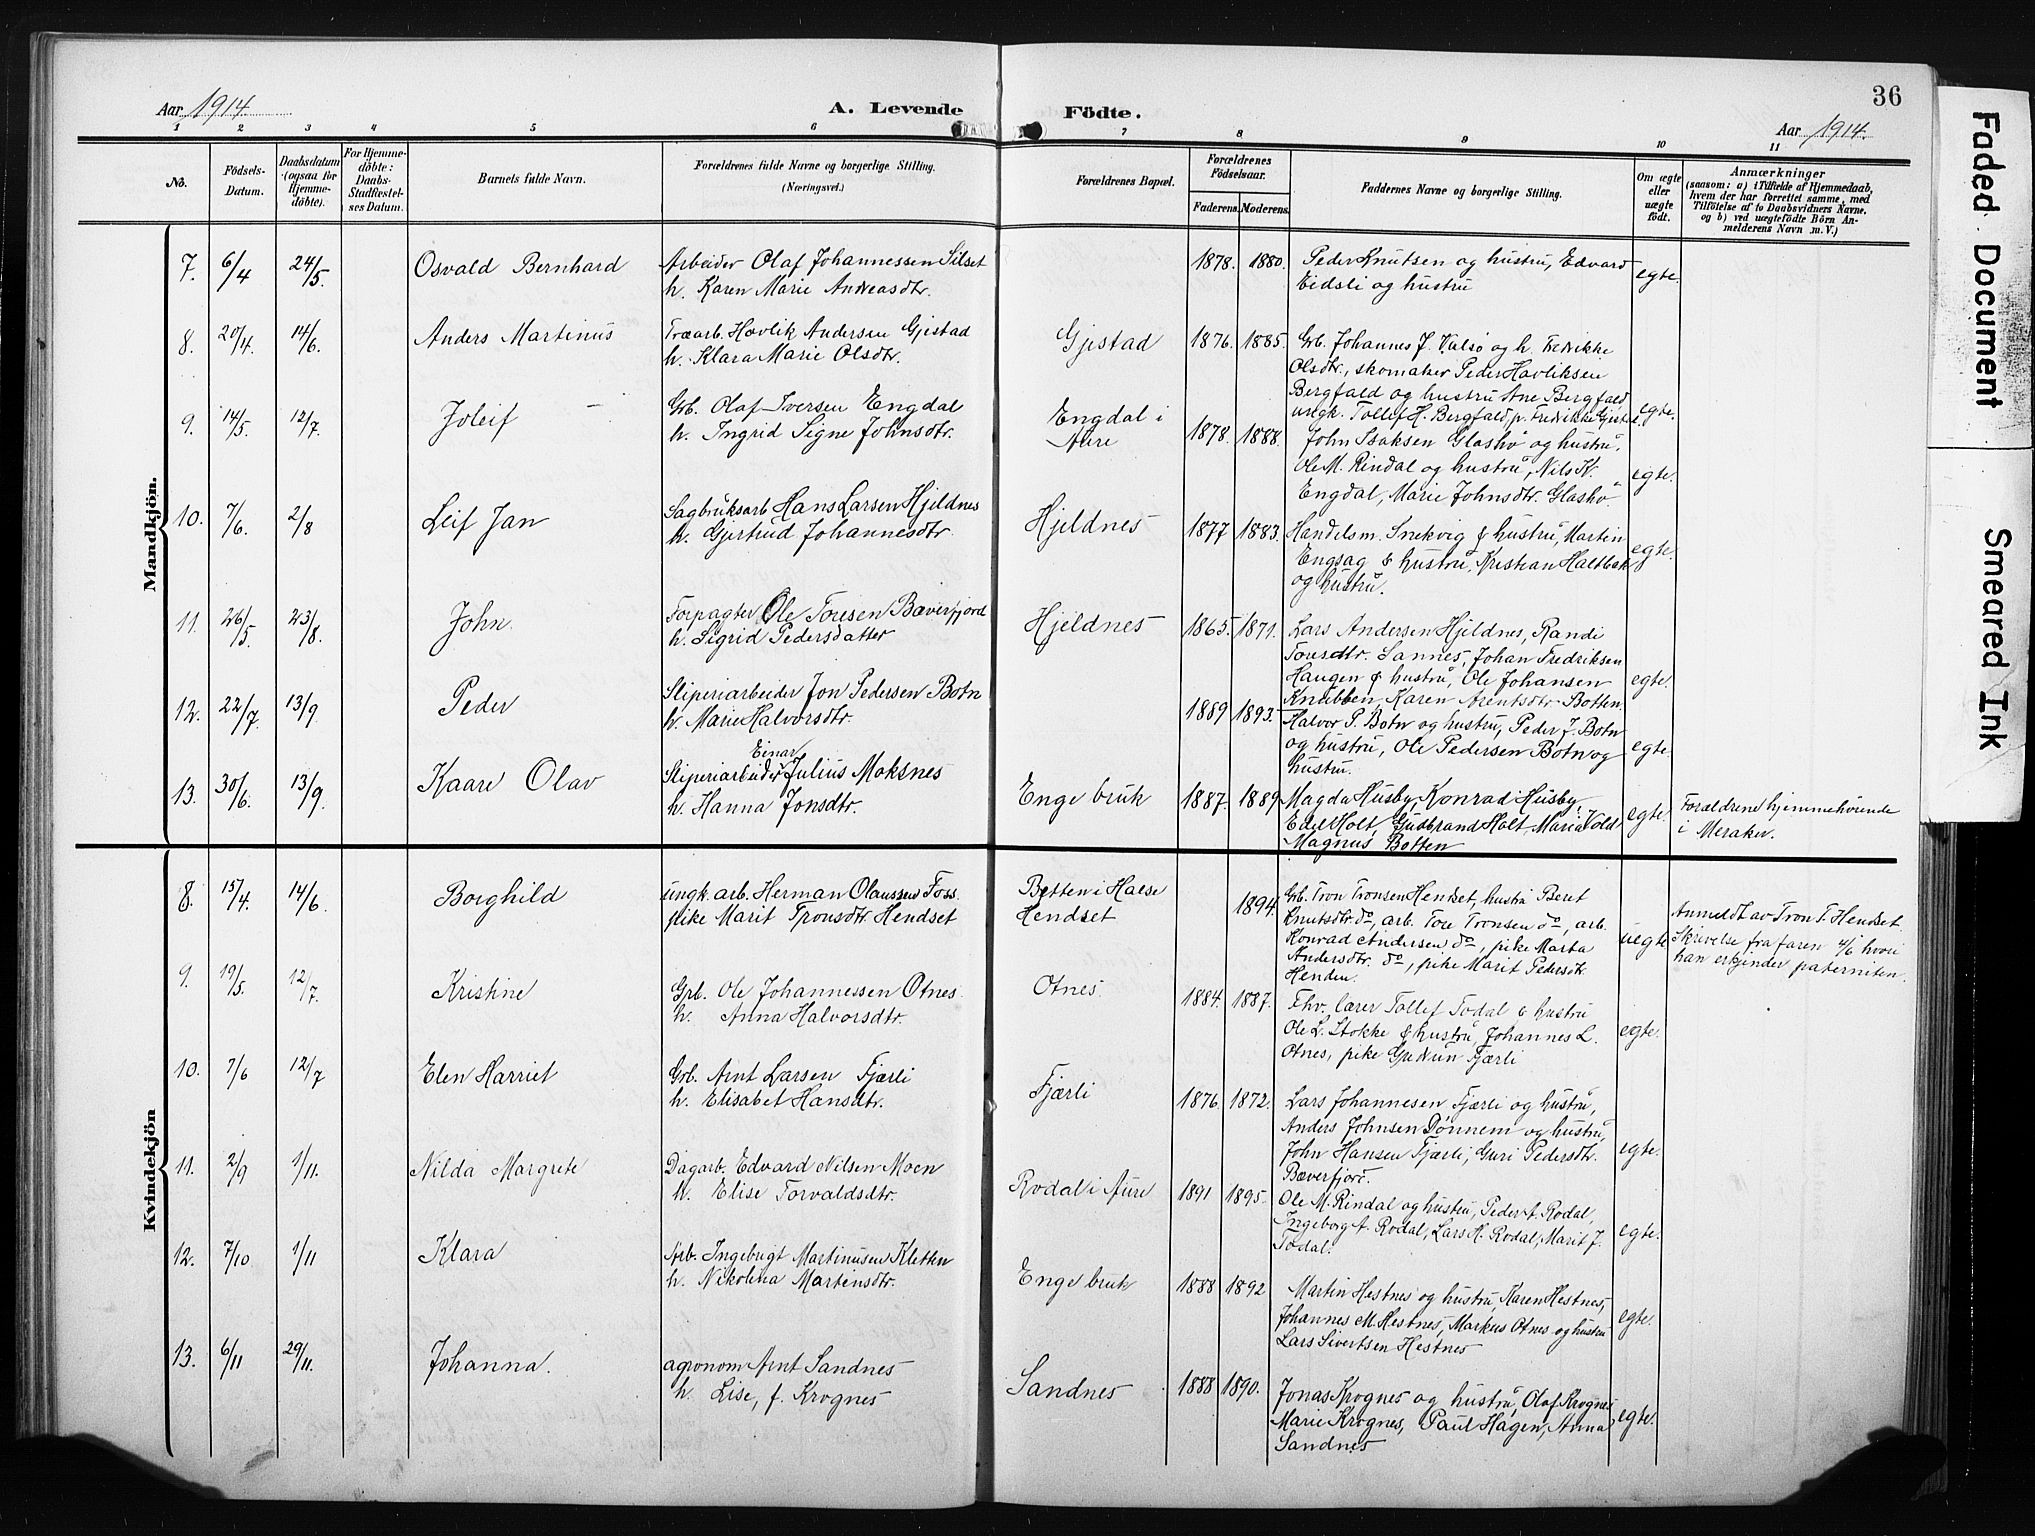 36
Aar 1914.
A. Levende Födte.
Aar 1914.
1 2 3 4 5 6 7 8 9 10 11
No.
Födsels-Datum.
Daabsdatum (ogsaa for Hjemme-döbte).
For Hjemme-döbte: Daabs-Stadfæstel-ses Datum.
Barnets fulde Navn.
Forældrenes fulde Navne og borgerlige Stilling.
(Næringsvei.)
Forældrenes Bopæl.
Forældrenes Födselsaar.
Faderens. Moderens.
Faddernes Navne og borgerlige Stilling.
Om ægte eller uægte födt.
Anmærkninger
(saasom: a) i Tilfælde af Hjemmedaab, hvem der har forrettet samme, med Tilföielse af to Daabsvidners Navne, og b) ved uægtefödte Börn Anmelderens Navn m.V.)
Mandkjön.
7. 6/4 24/5. Osvald Bernhard
Arbeider Olaf Johannessen Silset
h. Karen Marie Andreasdtr.
1878. 1880.
Peder Knutsen og hustru, Edvard
Eidsli og hustru
egte.
8. 20/4. 14/6. Anders Martinus
Træarb. Havlik Andersen Gjistad
h. Klara Marie Olsdtr.
Gjistad 1876. 1885.
Grb. Johannes J. Valsø og h. Fredrikke
Olsdtr., skomaker Peder Havliksen
Bergfald og hustru Ane Bergfald
ungk. Tollef H. Bergfald, p. Fredrikke Gjistad.
egte.
9. 14/5. 12/7. Joleif
Grb. Olaf Iversen Engdal
h. Ingrid Signe Johnsdtr.
Engdal i
Aure
1878. 1888.
John Isaksen Glashø og hustru.
Ole M. Rindal og hustru, Nils K.
Engdal, Marie Johnsdtr. Glashø
egte.
10. 7/6. 2/8 Leif Jan
Sagbruksarb Hans Larsen Hjeldnes
h. Gjertrud Johannesdtr.
Hjeldnes 1877 1883.
Handelsm. Snekvig & hustru, Marten
Engsag & hustru, Kristian Haltbak
og hustru.
egte.
11. 26/5. 23/8. John.
Forpagter Ole Toresen Bæverfjord
h. Sigrid Pedersdatter
Hjeldnes 1865. 1871.
Lars Andersen Hjeldnes, Randi
Toresdtr. Sannes, Johan Fredriksen
Haugen & hustru, Ole Johansen
Knubben, Karen Arentsdtr. Botten.
egte.
12. 22/7. 13/9. Peder
Sliperiarbeider Jon Pedersen Botn
h. Marie Halvorsdtr.
1889 1893.
Halvor P. Botn og hustru, Peder J. Botn
og hustru, Ole Pedersen Botn og
hustru.
egte.
13. 30/6. 13/9. Kaare Olav
Einar
Sliperiarbeider Julius Moksnes
h. Hanna Jonsdtr.
Enge bruk 1887. 1889
Magda Husby, Konrad Husby,
Edel Holt, Gudbrand Holt, Maria Vold
Magnus Botten
egte.
Forældrene hjemmehörende
i Meraker.
Kvindekjön
8. 15/4. 14/6. Borghild
ungk. arb. Herman Olaussen Foss
pike Marit Tronsdtr Hendset
Betten i Halse
Hendset
1894.
Grb. Tron Tronsen Hendset, hustru Beret
Knutsdtr do, arb. Tore Tronsen do, arb.
Konrad Andersen do, pike Marta
Andersdtr. do, pike Marit Pedersdtr.
Henden.
uegte
Anmeldt av Tron T. Hendset.
Skrivelse fra faren 4/6 hvori
han erkjender paterniteten.
9. 19/5. 12/7. Kristine
Grb. Ole Johannessen Otnes
h. Anna Halvorsdtr.
Otnes. 1884. 1887.
Fhv. lærer Tollef Todal & hustru
Ole L. Stokke & hustru, Johannes L.
Otnes, pike Gudrun Fjærli
egte.
10. 7/6 12/7 Elen Harriet
Grb. Arnt Larsen Fjærli
h. Elisabet Hansdtr.
Fjærli 1876. 1872.
Lars Johannesen Fjærli og hustru,
Anders Johnsen Dønnem og hustru,
John Hansen Fjærli, Guri Pedersdtr.
Bæverfjord.
egte.
11. 2/9 1/11. Nilda Margrete
Dagarb. Edvard Nilsen Moen
h. Elise Torvaldsdtr.
Rodal i Aure 1891 1895.
Ole M. Rindal og hustru, Peder A. Rodal,
Ingeborg A. Rodal, Lars H. Rodal, Marit J.
Todal.
egte.
12. 7/10. 1/11 Klara
Arb. Ingebrigt Martinusen Kletten
h. Nikolina Martensdtr.
Enge bruk 1888 1892
Martin Hestnes og hustru, Karen Hestnes,
Johannes M. Hestnes, Markus Otnes og hustru
Lars Sivertsen Hestnes
egte.
13. 6/11 29/11. Johanna.
agronom Arnt Sandnes
h. Lise, f. Krognes
Sandnes 1888 1890.
Jonas Krognes og hustru, Olaf Krognes
Marie Krognes, Paul Hagen, Anna
Sandnes
egte.
Faded Document
Smeared Ink